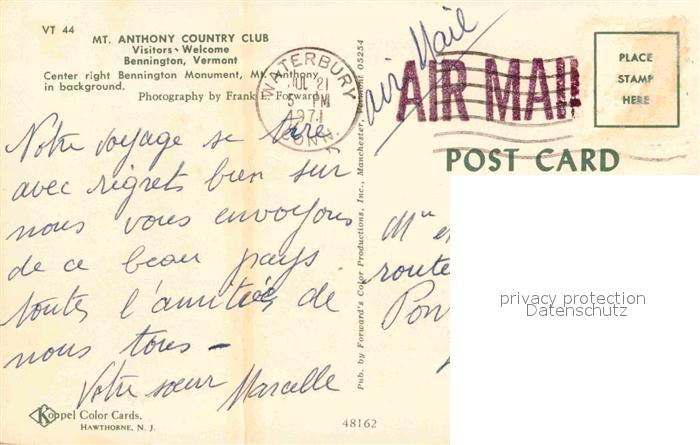 VT 44
MT. ANTHONY COUNTRY CLUB
Visitors Welcome
Bennington, Vermont
Center right Bennington Monument, Mt. Anthony
in background.
Photography by Frank L. Forward
WATERBURY
JUL 21
5 PM
1971
CONN.
air Mail
AIR MAIL
PLACE
STAMP
HERE
POST CARD
Notre voyage se tire
avec regrets bien sur
nous vous envoyons
de ce beau pays
toutes l'amitiés de
nous tous -
Votre sœur Marcelle
Pub. by Forward's Color Productions, Inc., Manchester, Vermont 05254
route
privacy protection
Datenschutz
Koppel Color Cards.
HAWTHORNE, N. J.
48162